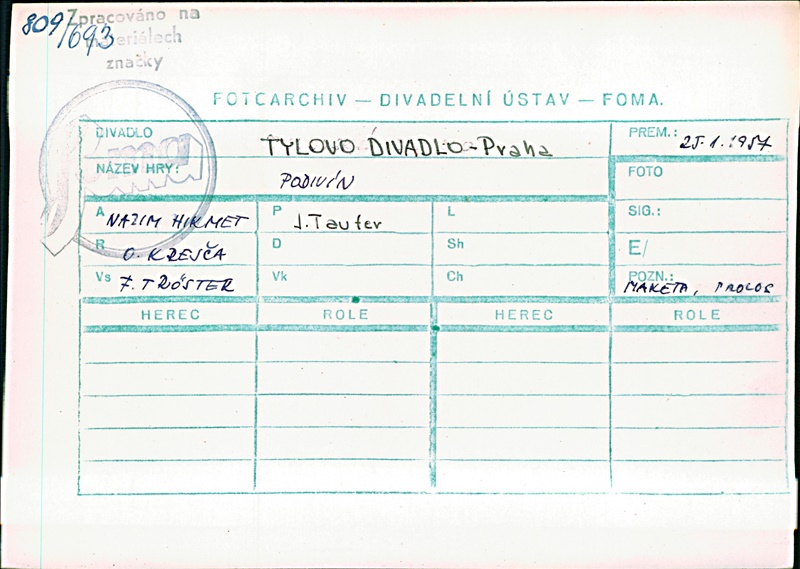 809/693
Zpracováno na
materiálech
značky
Foma
FOTOARCHIV — DIVADELNÍ ÚSTAV — FOMA.
DIVADLO TYLOVO DIVADLO - Praha PREM.: 25.1.1957
NÁZEV HRY: PODIVÍN FOTO
A NAZIM HIKMET P J. Taufer L SIG.:
R O. KREJČA D Sh E/
Vs F. TRÖSTER Vk Ch POZN.: MAKETA, PROLOG
HEREC ROLE HEREC ROLE